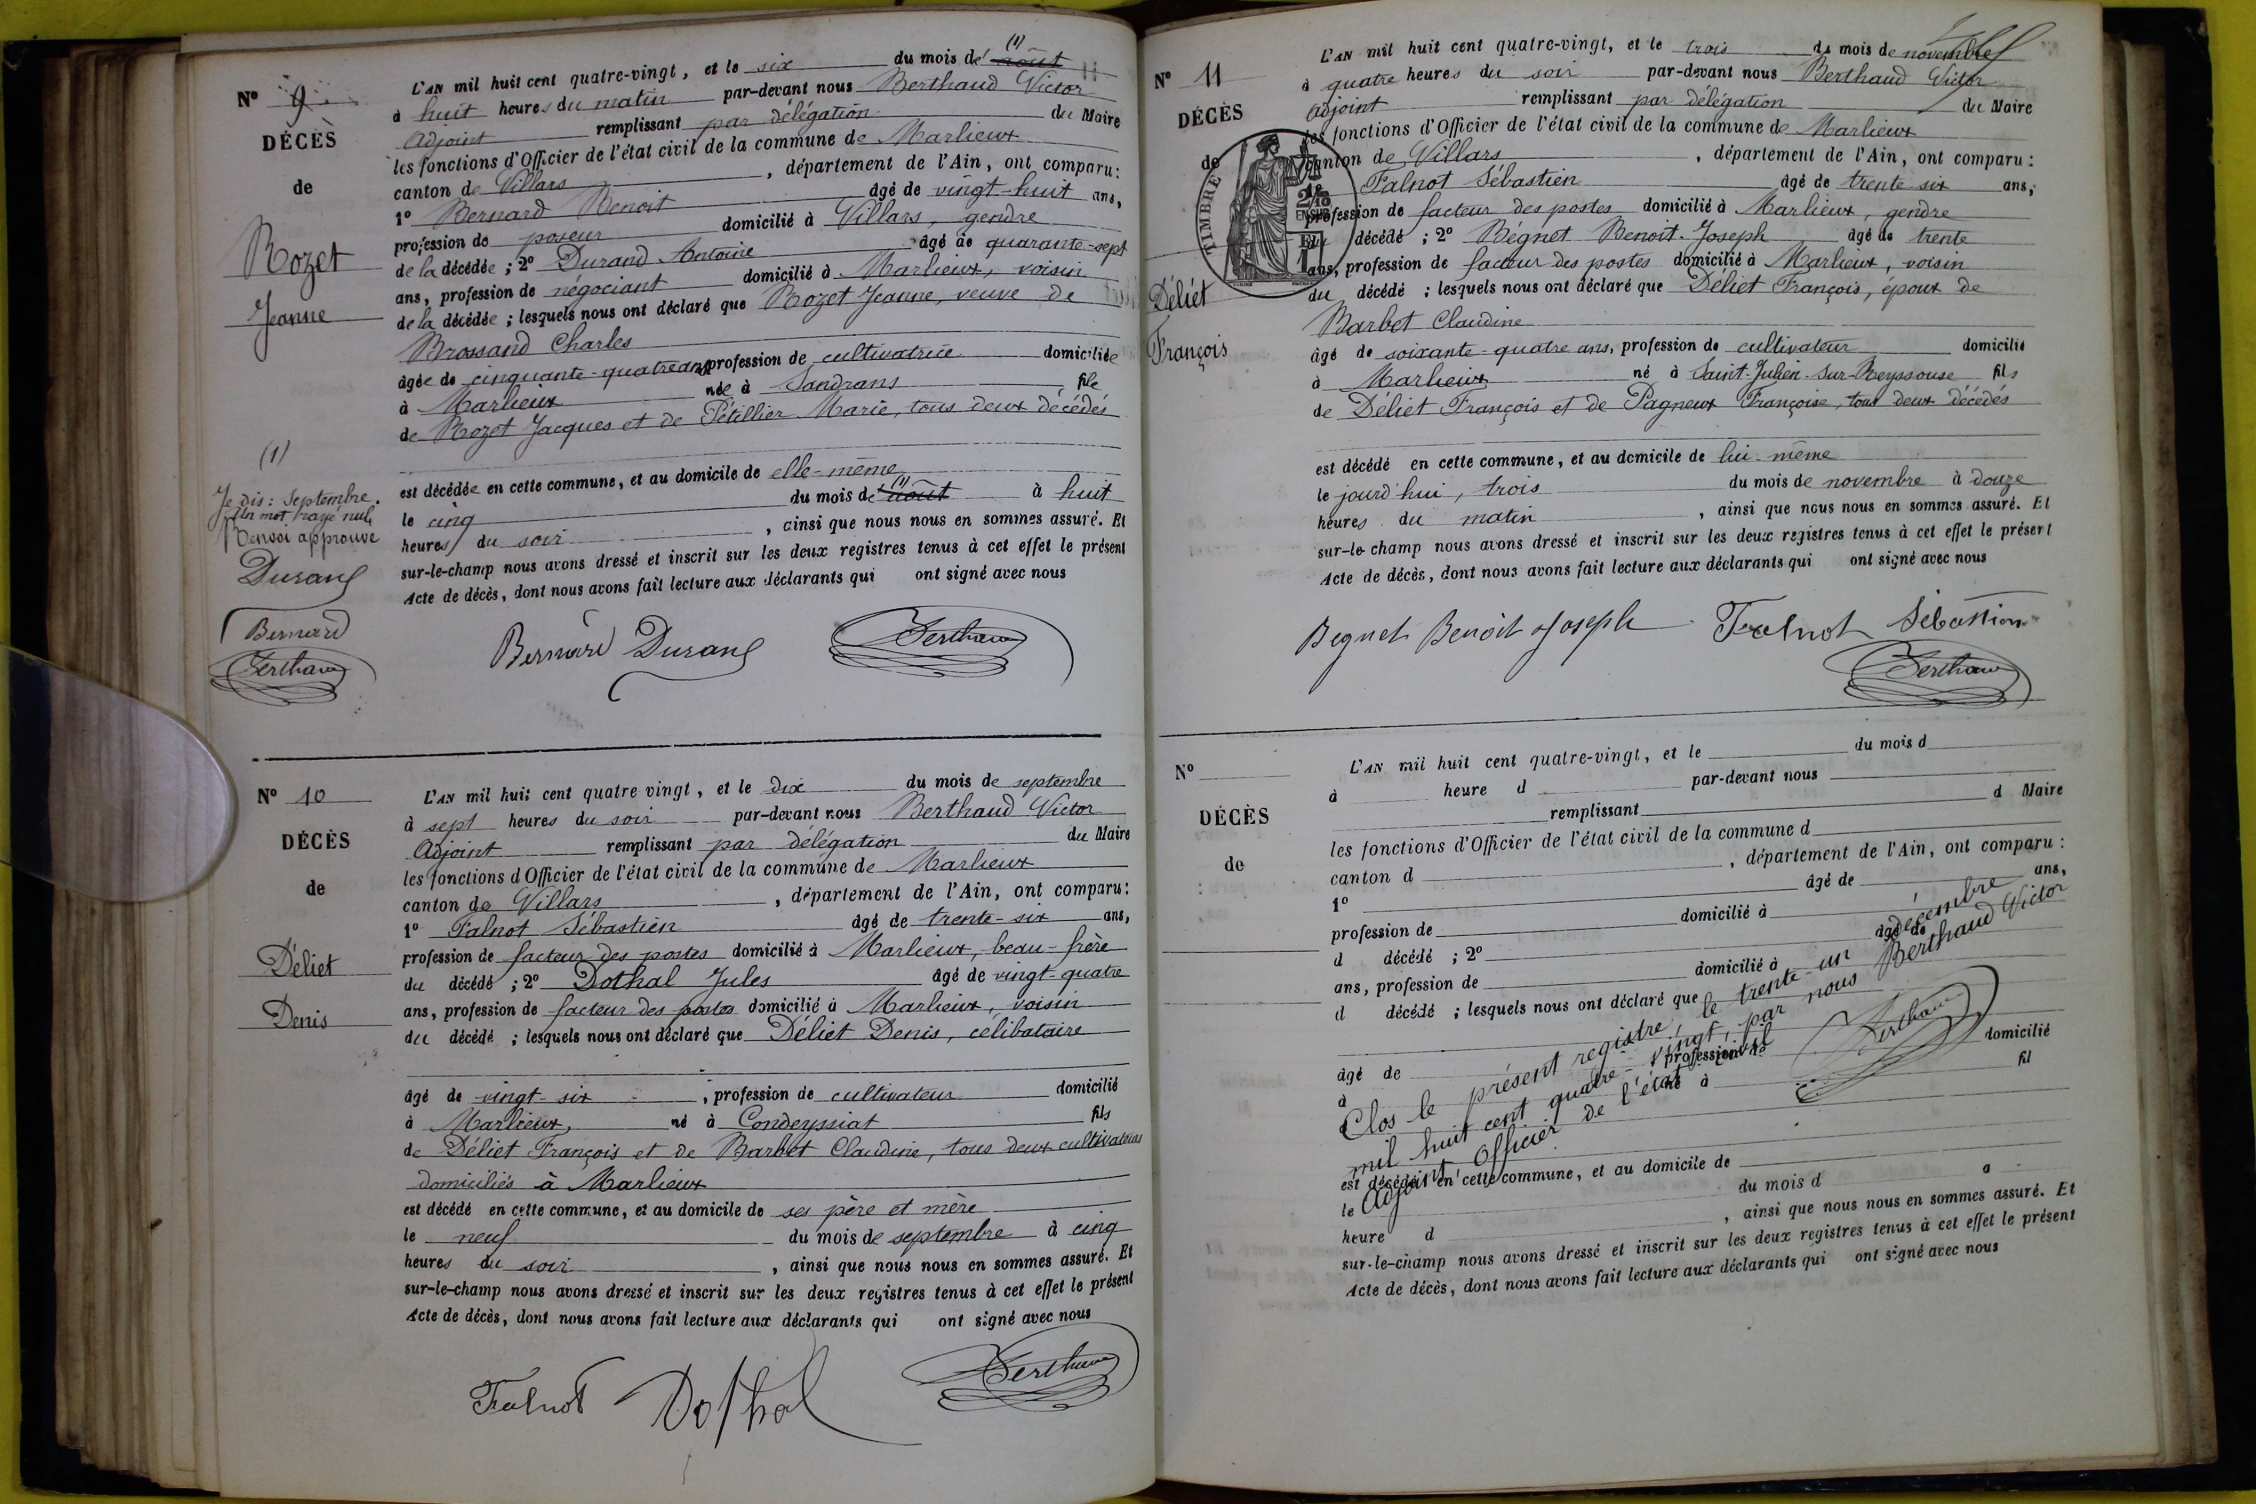 N° 9
DÉCÈS
de
Rozet
Jeanne
(1)
Je dis : Septembre.
Un mot rayé nul.
Renvoi approuvé
Durand
Bernard
Berthaud
L'AN mil huit cent quatre-vingt, et le six du mois de (1) août
à huit heures du matin par-devant nous Berthaud Victor
Adjoint remplissant par délégation du Maire
les fonctions d'Officier de l'état civil de la commune de Marlieux
canton de Villars, département de l'Ain, ont comparu :
1° Bernard Benoit âgé de vingt-huit ans,
profession de poseur domicilié à Villars, gendre
de la décédée ; 2° Durand Antoine âgé de quarante-sept
ans, profession de négociant domicilié à Marlieux, voisin
de la décédée ; lesquels nous ont déclaré que Rozet Jeanne, veuve de
Brossand Charles
âgée de cinquante-quatre ans profession de cultivatrice domiciliée
à Marlieux née à Sandrans fille
de Rozet Jacques et de Pétillier Marie, tous deux décédés
est décédée en cette commune, et au domicile de elle-même
le cinq du mois de (1) août à huit
heures du soir, ainsi que nous nous en sommes assuré. Et
sur-le-champ nous avons dressé et inscrit sur les deux registres tenus à cet effet le présent
Acte de décès, dont nous avons fait lecture aux déclarants qui ont signé avec nous
Bernard Durand Berthaud
N° 10
DÉCÈS
de
Déliet
Denis
L'AN mil huit cent quatre vingt, et le dix du mois de septembre
à sept heures du soir par-devant nous Berthaud Victor
Adjoint remplissant par délégation du Maire
les fonctions d'Officier de l'état civil de la commune de Marlieux
canton de Villars, département de l'Ain, ont comparu :
1° Falnot Sébastien âgé de trente-six ans,
profession de facteur des postes domicilié à Marlieux, beau-frère
du décédé ; 2° Dothal Jules âgé de vingt-quatre
ans, profession de facteur des postes domicilié à Marlieux, voisin
du décédé ; lesquels nous ont déclaré que Déliet Denis, célibataire
âgé de vingt-six, profession de cultivateur domicilié
à Marlieux, né à Condeyssiat fils
de Déliet François et de Barbet Claudine, tous deux cultivateurs
domiciliés à Marlieux
est décédé en cette commune, et au domicile de ses père et mère
le neuf du mois de septembre à cinq
heures du soir, ainsi que nous nous en sommes assuré. Et
sur-le-champ nous avons dressé et inscrit sur les deux registres tenus à cet effet le présent
Acte de décès, dont nous avons fait lecture aux déclarants qui ont signé avec nous
Falnot Dothal Berthaud
N° 11
DÉCÈS
de
TIMBRE
Déliet
François
L'AN mil huit cent quatre-vingt, et le trois du mois de novembre
à quatre heures du soir par-devant nous Berthaud Victor
Adjoint remplissant par délégation du Maire
les fonctions d'Officier de l'état civil de la commune de Marlieux
canton de Villars, département de l'Ain, ont comparu :
1° Falnot Sébastien âgé de trente-six ans,
profession de facteur des postes domicilié à Marlieux, gendre
du décédé ; 2° Bégnet Benoit-Joseph âgé de trente
ans, profession de facteur des postes domicilié à Marlieux, voisin
du décédé ; lesquels nous ont déclaré que Déliet François, époux de
Barbet Claudine
âgé de soixante-quatre ans, profession de cultivateur domicilié
à Marlieux né à Saint-Julien-sur-Reyssouse fils
de Déliet François et de Pagneux Françoise, tous deux décédés
est décédé en cette commune, et au domicile de lui-même
le jourd'hui, trois du mois de novembre à douze
heures du matin, ainsi que nous nous en sommes assuré. Et
sur-le-champ nous avons dressé et inscrit sur les deux registres tenus à cet effet le présent
Acte de décès, dont nous avons fait lecture aux déclarants qui ont signé avec nous
Begnet Benoit Joseph Falnot Sébastien
Berthaud
N°
DÉCÈS
de
L'AN mil huit cent quatre-vingt, et le du mois d
à heure d par-devant nous
remplissant d Maire
les fonctions d'Officier de l'état civil de la commune d
canton d , département de l'Ain, ont comparu :
1° âgé de ans,
profession de domicilié à
d décédé ; 2° âgé de
ans, profession de domicilié à
d décédé ; lesquels nous ont déclaré que
âgé de profession de domicilié
à né à fil
Clos le présent registre, le trente-un décembre
mil huit cent quatre-vingt, par nous Berthaud Victor
Adjoint Officier de l'état civil
Berthaud
est décédé en cette commune, et au domicile de
le du mois d à
heure d , ainsi que nous nous en sommes assuré. Et
sur-le-champ nous avons dressé et inscrit sur les deux registres tenus à cet effet le présent
Acte de décès, dont nous avons fait lecture aux déclarants qui ont signé avec nous